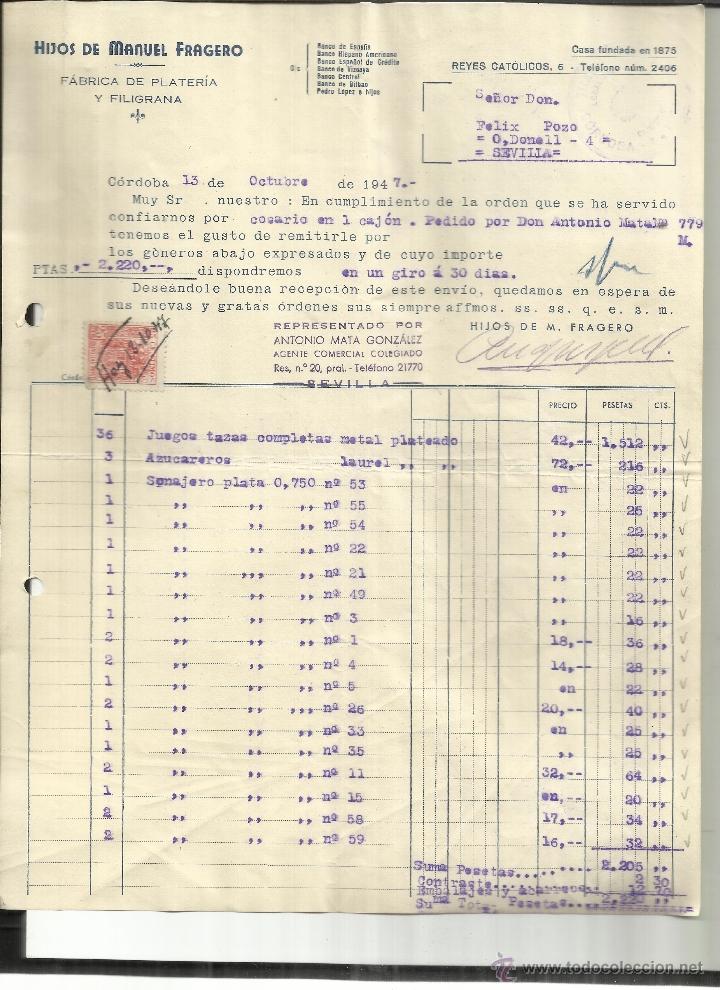 HIJOS DE MANUEL FRAGERO
FÁBRICA DE PLATERÍA
Y FILIGRANA
c/c
Banco de España
Banco Hispano Americano
Banco Español de Crédito
Banco de Vizcaya
Banco Central
Banco de Bilbao
Pedro López e hijos
Casa fundada en 1875
REYES CATÓLICOS, 6 - Teléfono núm. 2406
Señor Don.
Felix Pozo
= O,Donell - 4 =
= SEVILLA=
Córdoba 13 de Octubre de 1947.-
Muy Sr . nuestro: En cumplimiento de la orden que se ha servido
confiarnos por cosario en 1 cajón . Pedido por Don Antonio Mata Nº 779
M.
tenemos el gusto de remitirle por
los géneros abajo expresados y de cuyo importe
PTAS ,- 2.220,--, dispondremos en un giro á 30 dias.
Deseándole buena recepción de este envío, quedamos en espera de
sus nuevas y gratas órdenes sus siempre affmos. ss. ss. q. e. s. m.
HIJOS DE M. FRAGERO
REPRESENTADO POR
ANTONIO MATA GONZÁLEZ
AGENTE COMERCIAL COLEGIADO
Res, n.º 20, pral. - Teléfono 21770
SEVILLA
PRECIO PESETAS CTS.
36 Juegos tazas completas metal plateado 42,-- 1.512 ,,
3 Azucareros laurel ,, ,, 72,-- 216 ,,
1 Sonajero plata 0,750 nº 53 en 22 ,,
1 ,, ,, ,, nº 55 ,, 25 ,,
1 ,, ,, ,, nº 54 ,, 22 ,,
1 ,, ,, ,, nº 22 ,, 22 ,,
1 ,, ,,, ,, nº 21 ,, 22 ,,
1 ,, ,, ,, nº 49 ,, 22 ,,
1 ,, ,, ,, nº 3 ,, 16 ,,
2 ,, ,, ,, nº 1 18,-- 36 ,,
2 ,, ,, ,, nº 4 14,-- 28 ,,
1 ,, ,, ,, nº 5 en 22 ,,
2 ,, ,, ,,, nº 26 20,-- 40 ,,
1 ,, ,, ,, nº 33 en 25 ,,
1 ,, ,, ,, nº 35 ,, 25 ,,
2 ,, ,, ,, nº 11 32,-- 64 ,,
1 ,, ,, ,, nº 15 en,-- 20 ,,
2 ,, ,, ,, nº 58 17,-- 34 ,,
2 ,, ,, ,, nº 59 16,-- 32 ,,
Suma Pesetas....... 2.205 ,,
Contraste... 2 30
Embalajes y Acarreos 12 70
Suma Total Pesetas...... 2.220 ,,
www.todocoleccion.net